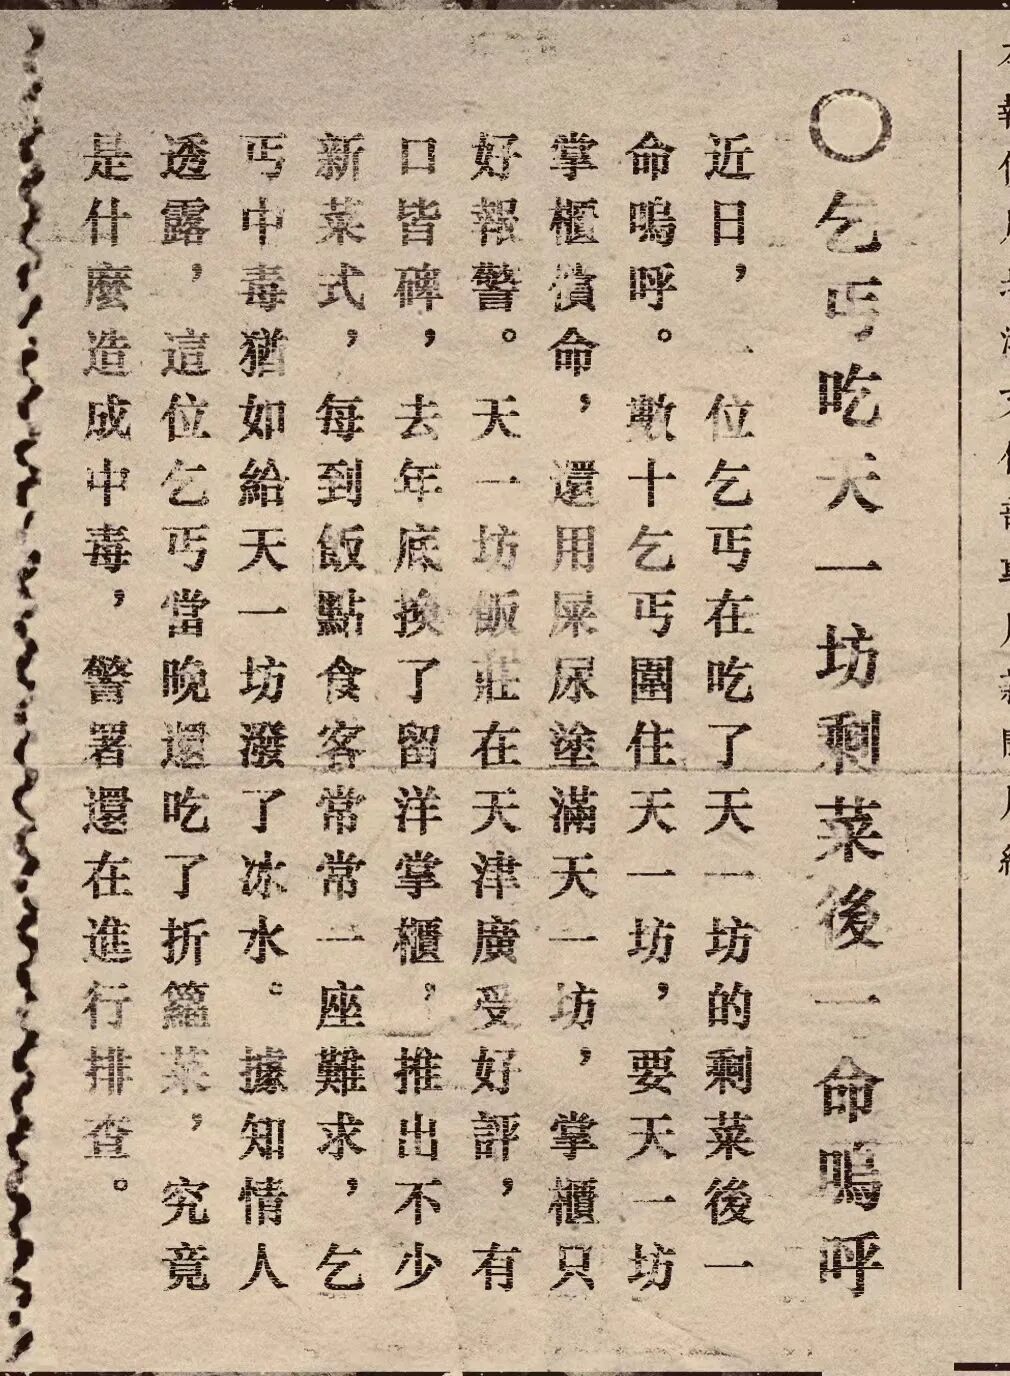 ○乞丐吃天一坊剩菜後一命嗚呼
近日，一位乞丐在吃了天一坊的剩菜後一
命嗚呼。數十乞丐圍住天一坊，要天一坊
掌櫃償命，還用屎尿塗滿天一坊，掌櫃只
好報警。天一坊飯莊在天津廣受好評，有
口皆碑，去年底換了留洋掌櫃，推出不少
新菜式，每到飯點食客常常一座難求，乞
丐中毒猶如給天一坊潑了冰水。據知情人
透露，這位乞丐當晚還吃了折籮菜，究竟
是什麼造成中毒，警署還在進行排查。